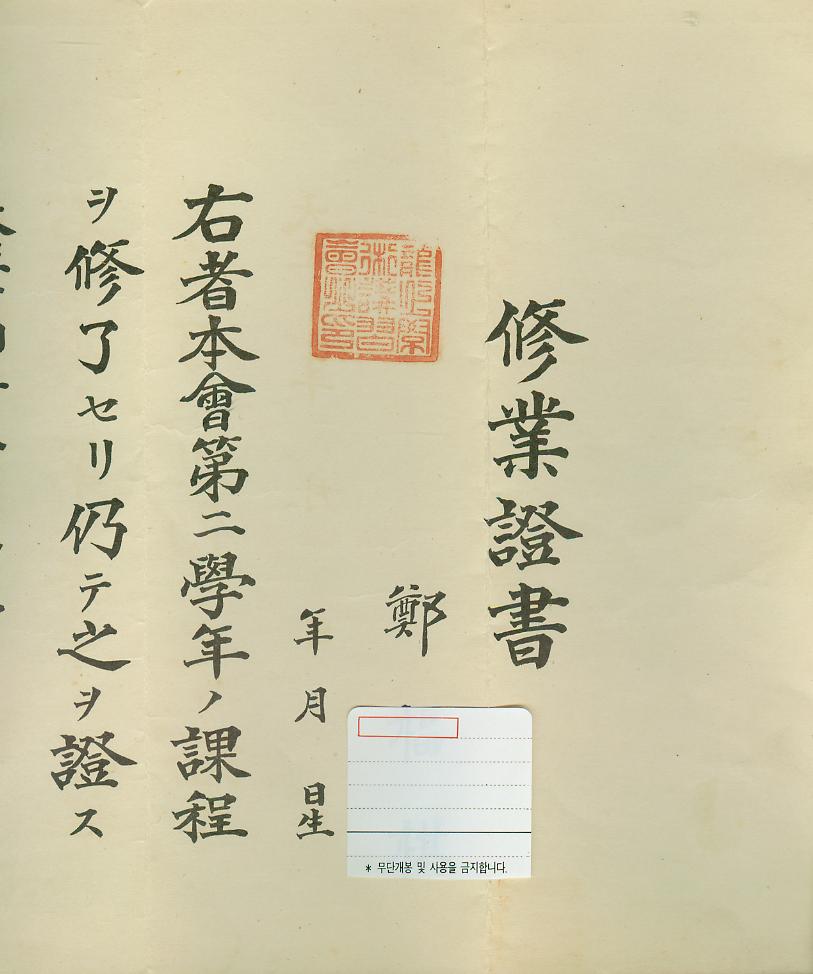 修業證書
鄭
年月日生
右者本會第二學年ノ課程
ヲ修了セリ仍テ之ヲ證ス
* 무단개봉 및 사용을 금지합니다.